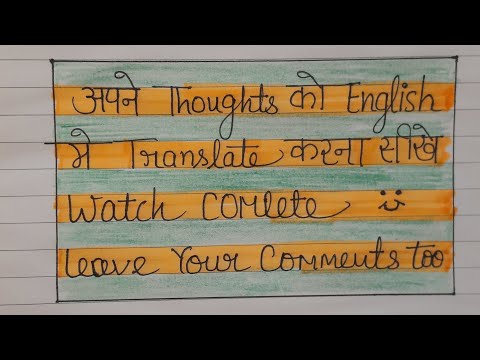 अपने Thoughts को English
मे Translate करना सीखे
Watch COMlete
leave Your Comments Too